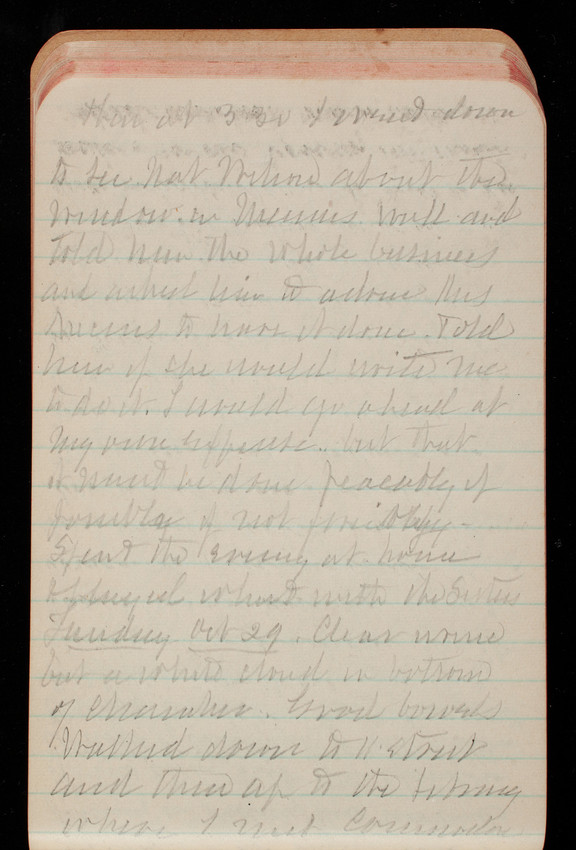 at 3 30 I went down
to see Nat Wilson about the
window in Minnies wall and
told him the whole business
and asked him to advise this
to have it done. Told
him if she would write me
to do it. I would go ahead at
my own expense. but that
it must be done peaceably if
possible if not forcibly -
Spent the evening at home
& played whist with the Sisters
Sunday Oct 29. Clear
but a white cloud in bottom
of chamber. Good bowels
Walked down to H street
and then up to the
where I met Commodore